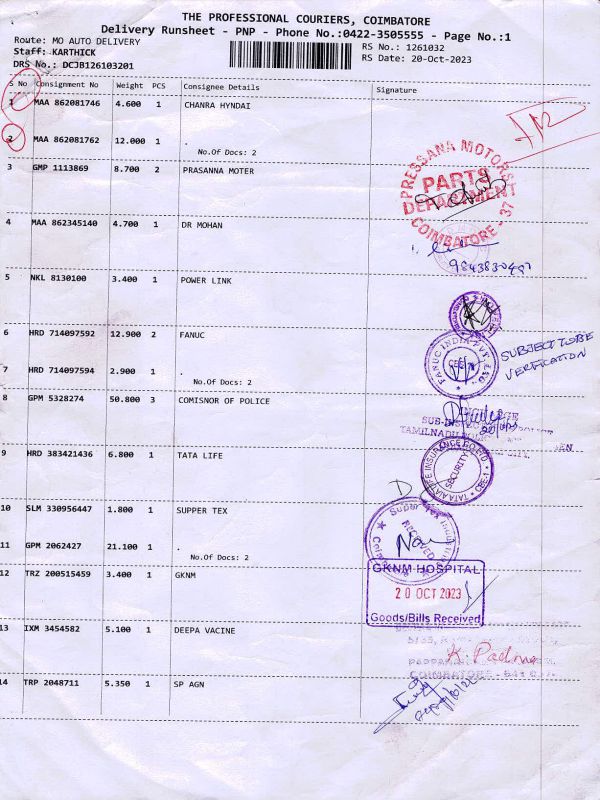 THE PROFESSIONAL COURIERS, COIMBATORE
Delivery Runsheet - PNP - Phone No.:0422-3505555 - Page No.:1
Route: MO AUTO DELIVERY RS No.: 1261032
Staff: KARTHICK RS Date: 20-Oct-2023
DRS No.: DCJB126103201
S No Consignment No Weight PCS Consignee Details Signature
1 MAA 862081746 4.600 1 CHANRA HYNDAI
2 MAA 862081762 12.000 1 .
No.Of Docs: 2
3 GMP 1113869 8.700 2 PRASANNA MOTER
PRESSANA MOTORS
PARTS
DEPARTMENT
COIMBATORE - 37
4 MAA 862345140 4.700 1 DR MOHAN
9843830497
5 NKL 8130100 3.400 1 POWER LINK
6 HRD 714097592 12.900 2 FANUC
FANUC INDIA PVT LTD.
SUBJECT TO BE
VERIFICATION
7 HRD 714097594 2.900 1 .
No.Of Docs: 2
8 GPM 5328274 50.800 3 COMISNOR OF POLICE
9 HRD 383421436 6.800 1 TATA LIFE
SECURITY
10 SLM 330956447 1.800 1 SUPPER TEX
RECEIVED
11 GPM 2062427 21.100 1 .
No.Of Docs: 2
12 TRZ 200515459 3.400 1 GKNM
GKNM HOSPITAL
20 OCT 2023
Goods/Bills Received
13 IXM 3454582 5.100 1 DEEPA VACINE
K. Padma
14 TRP 2048711 5.350 1 SP AGN